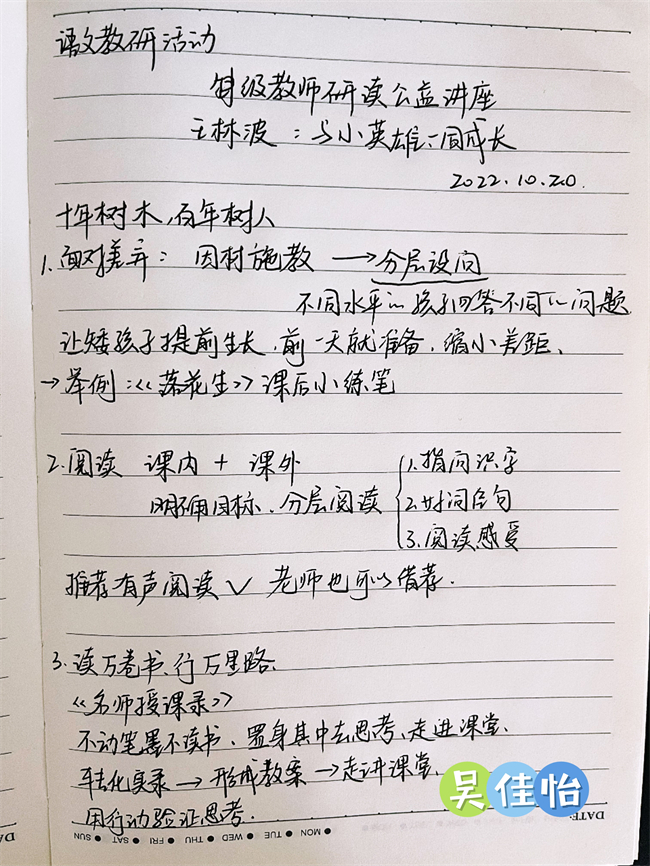 语文教研活动
特级教师研读公益讲座
王林波：与小英雄一同成长
2022.10.20.
十年树木，百年树人
1.面对差异：因材施教 →分层设问
不同水平的孩子回答不同的问题
让矮孩子提前生长，前一天就准备，缩小差距、
→举例：《落花生》课后小练笔
2.阅读 课内 + 课外
1.指向识字
明确目标、分层阅读
2.好词佳句
3.阅读感受
推荐有声阅读 ✓ 老师也可以借荐.
3.读万卷书、行万里路、
《名师授课录》
不动笔墨不读书、置身其中去思考、走进课堂、
转化实录 → 形成教案 → 走进课堂、
用行动验证思考.
吴佳怡
DATE:
MON TUE WED THU FRI SAT SUN
DATE